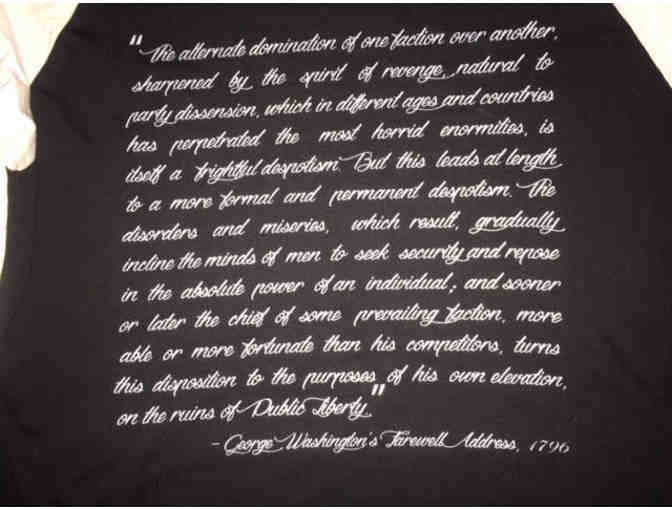 "The alternate domination of one faction over another,
sharpened by the spirit of revenge, natural to
party dissension, which in different ages and countries
has perpetrated the most horrid enormities, is
itself a frightful despotism. But this leads at length
to a more formal and permanent despotism. The
disorders and miseries, which result, gradually
incline the minds of men to seek security and repose
in the absolute power of an individual; and sooner
or later the chief of some prevailing faction, more
able or more fortunate than his competitors, turns
this disposition to the purposes of his own elevation,
on the ruins of Public Liberty"
- George Washington's Farewell Address, 1796